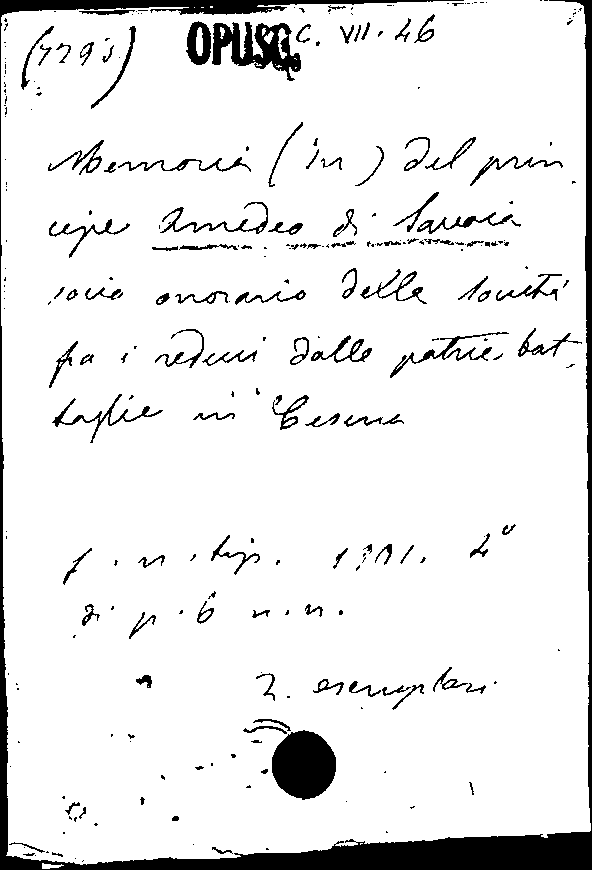 (7293) OPUSC. VII. 46
Memoria (in) del prin
cipe Amedeo di Savoia
socio onorario della società
fra i reduci dalle patrie bat,
taglie in Cesena
n. tip. 4°
di p. 6 n. n.
2. esemplari